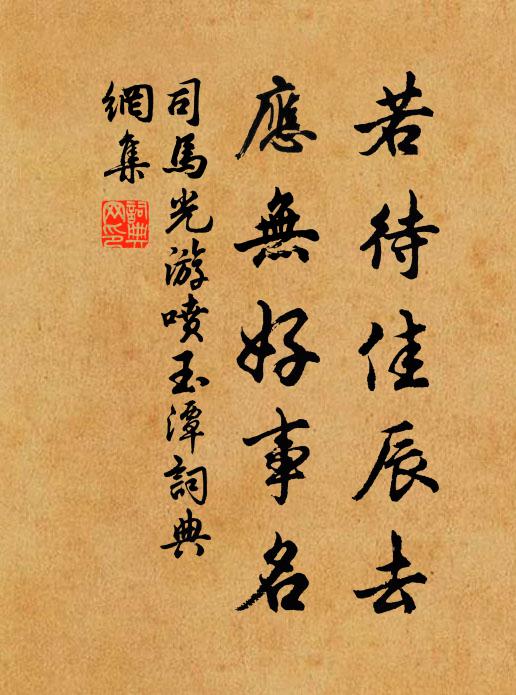 若待佳辰去
應無好事名
司馬光游噴玉潭詞典
網集
詞典
網印